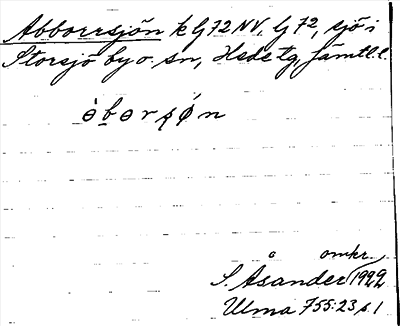 Abborrsjön k G72NV, G72, sjö i
Storsjö by o. sn, Hsds tg, Jämtl. l.
omkr.
S. Åsander 1922
Ulma 755:23 s. 1